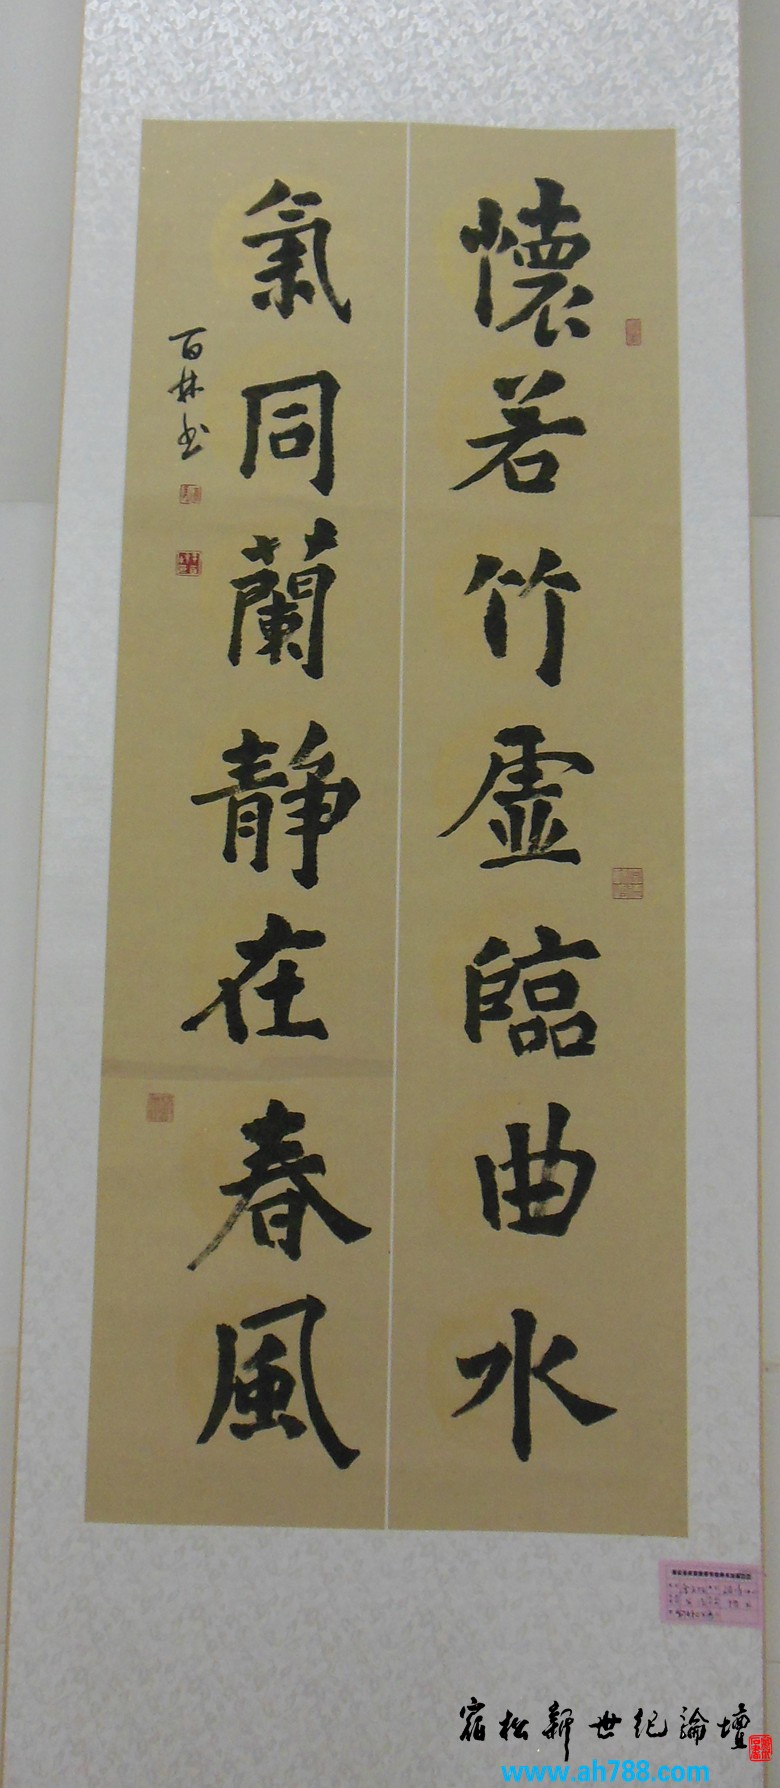 懷若竹虛臨曲水
氣同蘭靜在春風
百林书
宿松新世纪論壇
www.ah788.com